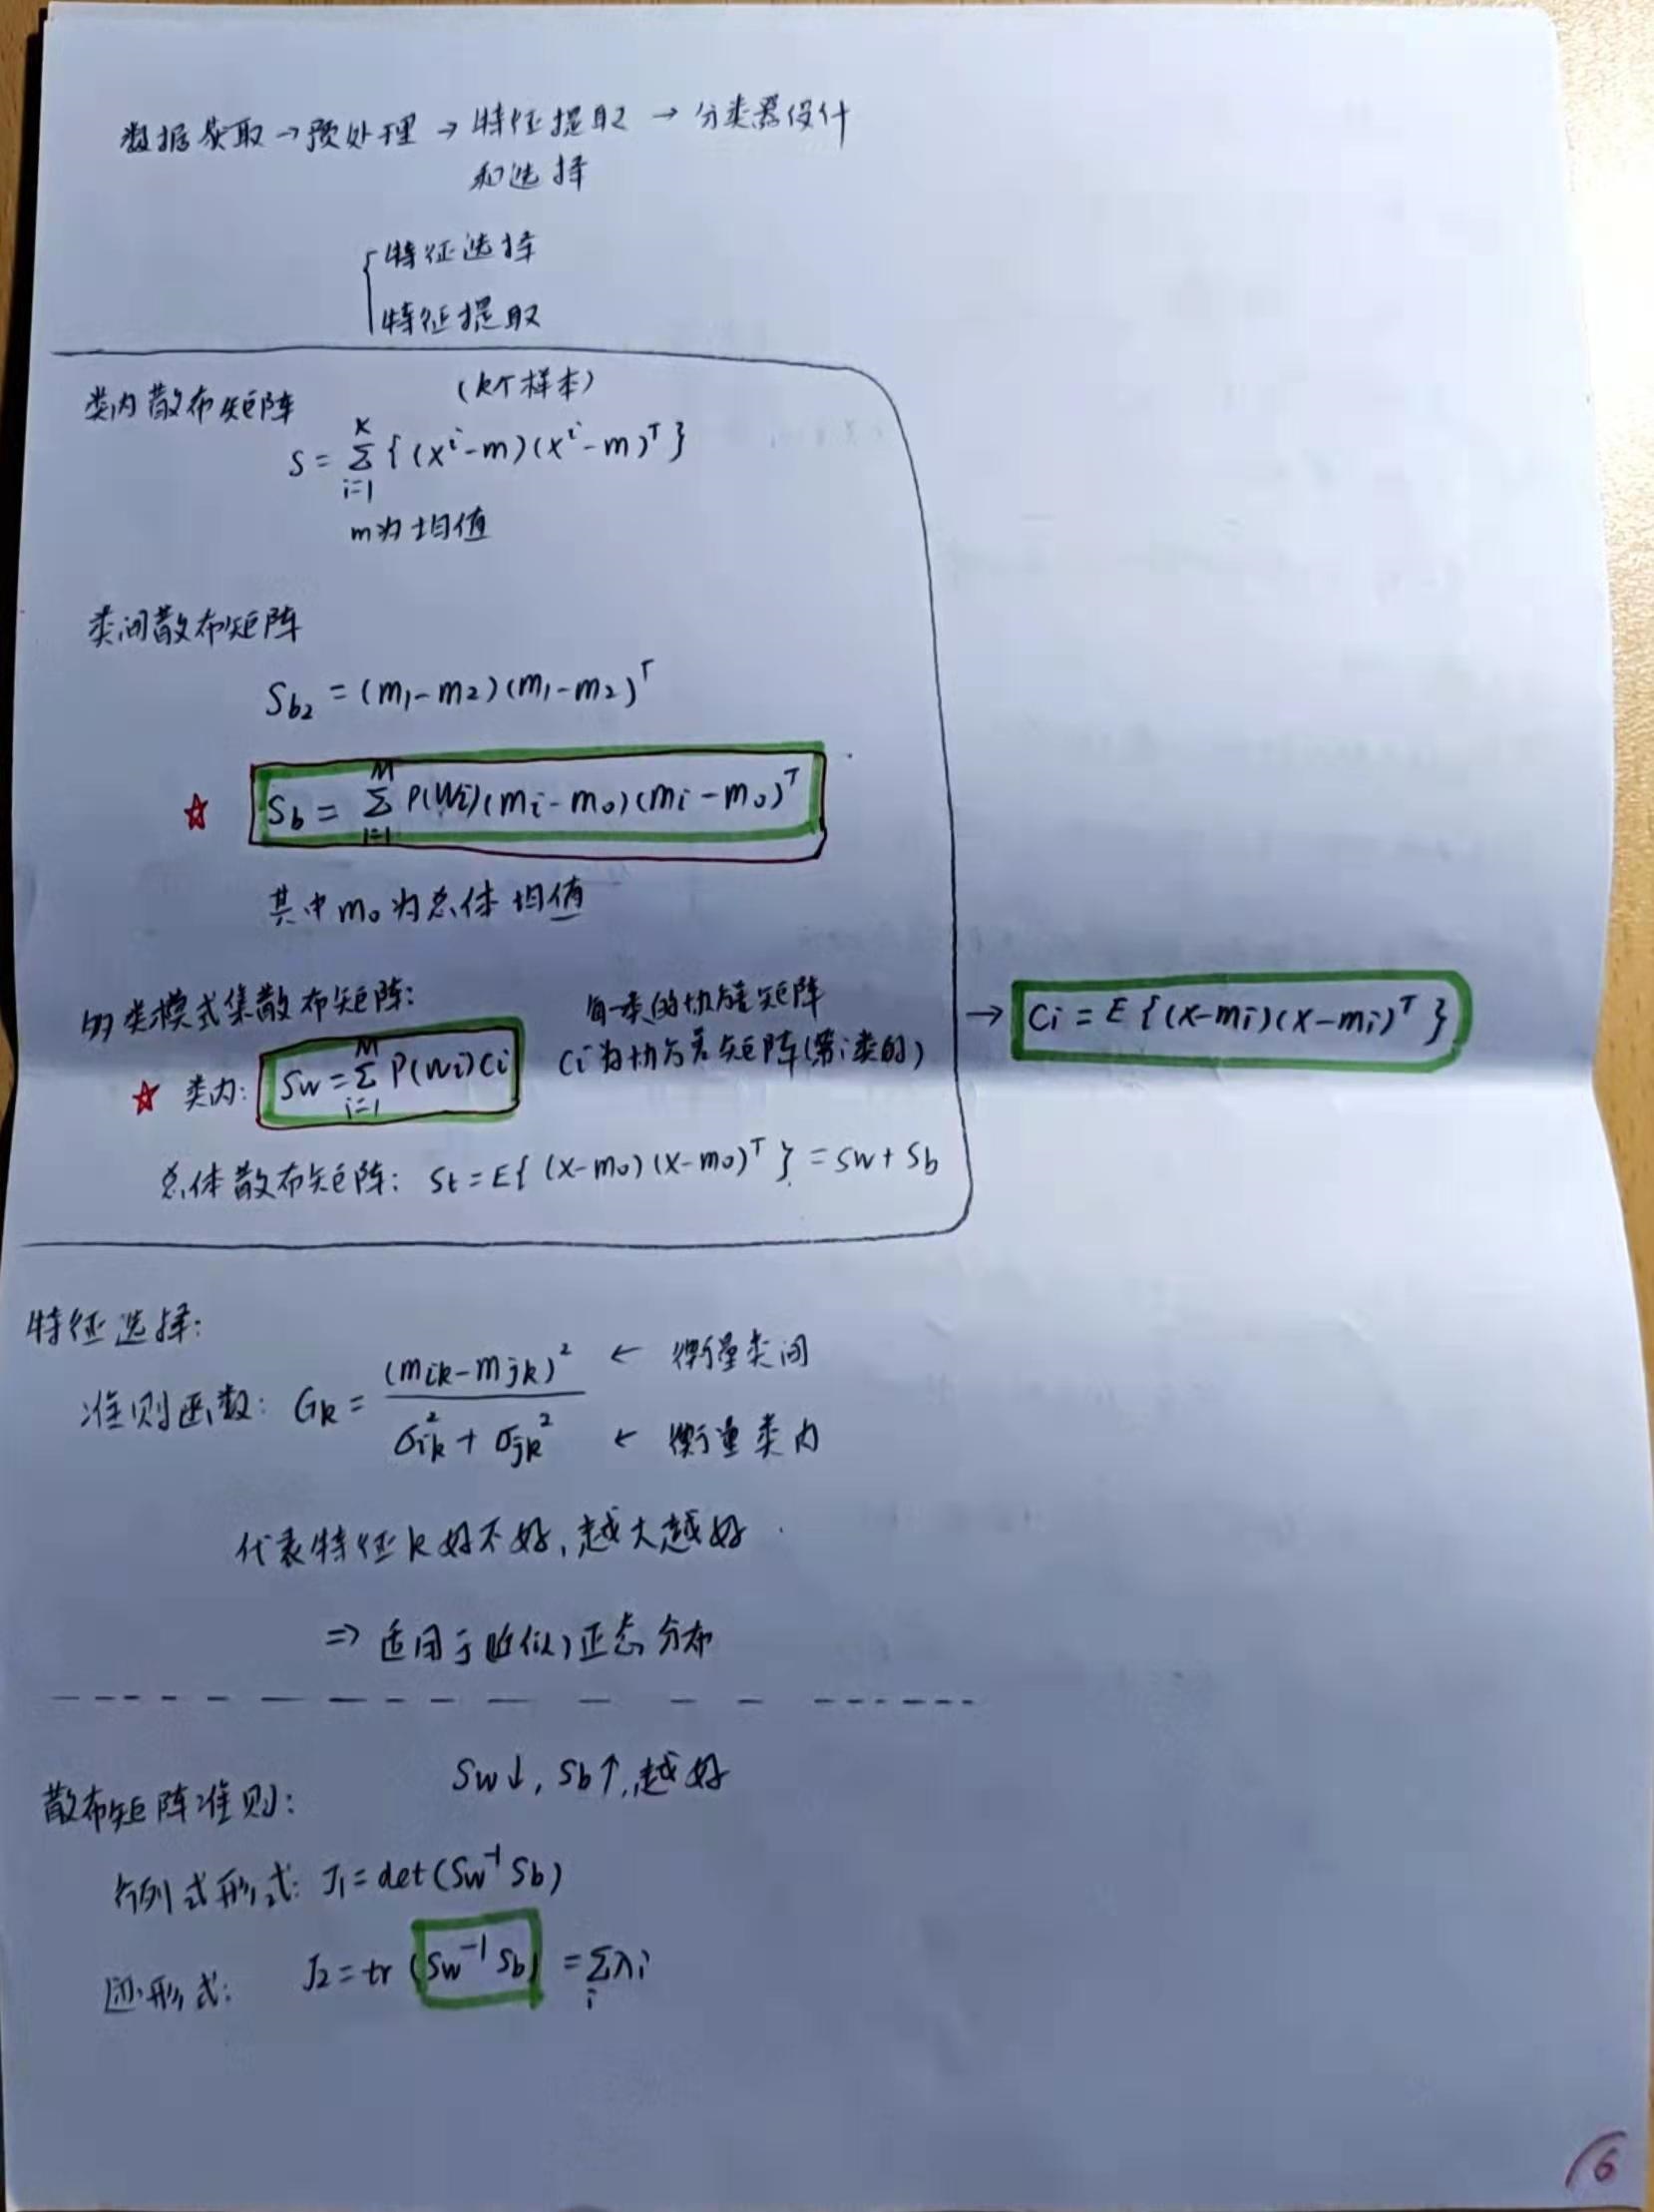 数据获取→预处理→特征提取→分类器设计
和选择
特征选择
特征提取
类内散布矩阵 (k个样本)
S = Σ_{i=1}^{K} { (x^i - m)(x^i - m)^T }
m为均值
类间散布矩阵
S_{b2} = (m₁ - m₂)(m₁ - m₂)^T
☆ S_b = Σ_{i=1}^{M} P(Wi)(m_i - m₀)(m_i - m₀)^T
其中m₀为总体均值
多类模式集散布矩阵: 每一类的协方差矩阵
☆ 类内: Sw = Σ_{i=1}^{M} P(Wi)Ci Ci为协方差矩阵(第i类的) → Ci = E{(X-mi)(X-mi)^T}
总体散布矩阵: St = E{(X-m₀)(X-m₀)^T} = Sw + Sb
特征选择:
准则函数: G_k = (m_{ik} - m_{jk})² / (σ_{ik}² + σ_{jk}²) ← 衡量类间
← 衡量类内
代表特征k好不好,越大越好.
⇒ 适用于(近似)正态分布
Sw↓, Sb↑, 越好
散布矩阵准则:
行列式形式: J₁ = det(Sw⁻¹Sb)
迹形式: J₂ = tr(Sw⁻¹Sb) = Σ_i λi
6